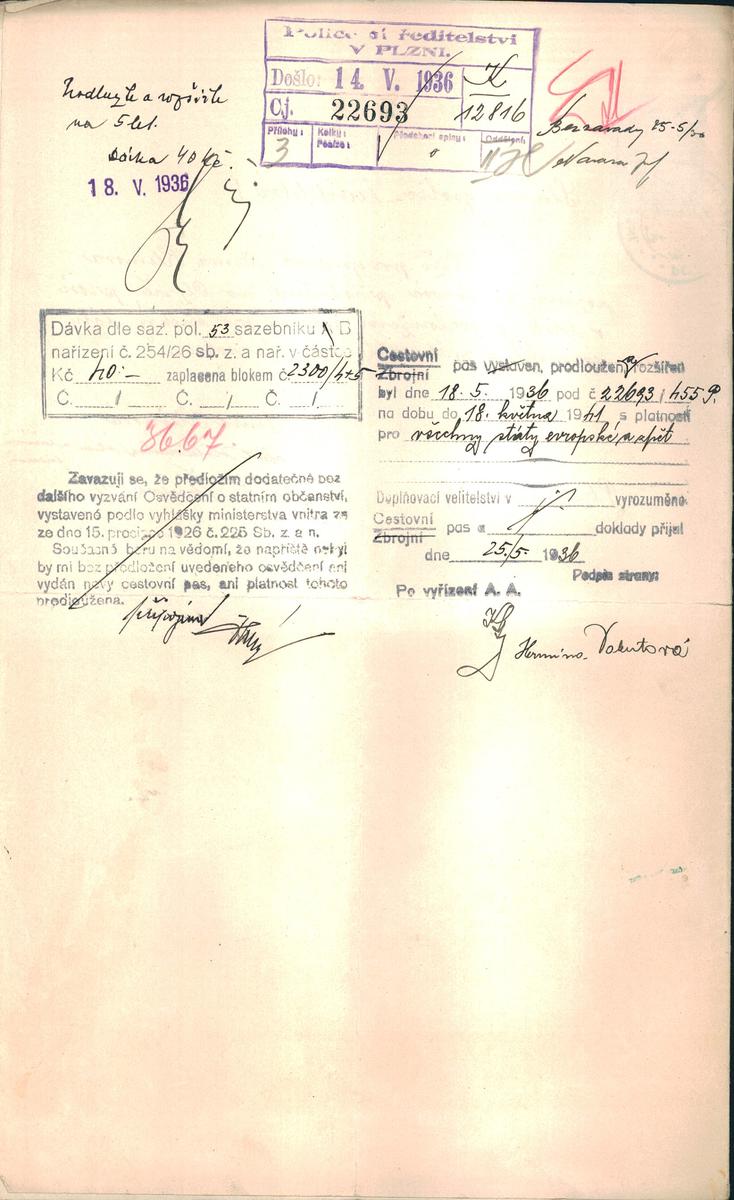 Policejní ředitelství
V PLZNI.
Došlo: 14. V. 1936
K
Č.j. 22693
12816
Přílohy: 3
Kolky:
Peníze:
Předchozí spisy: 0
Oddělení:
Bez závady 25-5/36
na 5 let.
Dávka 40 Kč.
18. V. 1936
Dávka dle saz. pol. 53 sazebníku A B
nařízení č. 254/26 sb. z. a nař. v částce
Kč 40·— zaplacena blokem č. 2300/4+5
Č. / Č. / Č. /
3667.
Zavazuji se, že předložím dodatečně bez
dalšího vyzvání Osvědčení o státním občanství,
vystavené podle vyhlášky ministerstva vnitra ze
ze dne 15. prosince 1926 č. 225 Sb. z. a n.
Současně beru na vědomí, že napříště nebyl
by mi bez předložení uvedeného osvědčení ani
vydán nový cestovní pas, ani platnost tohoto
prodloužena.
Cestovní
Zbrojní
pas vystaven, prodloužen, a rozšířen
byl dne 18. 5. 1936 pod č 22693/455 P.
na dobu do 18. května 1941 s platností
pro všechny státy evropské a zpět
Doplňovací velitelství v vyrozuměno.
Cestovní
Zbrojní
pas a doklady přijal
dne 25./5 1936
Podpis strany:
Po vyřízení A. A.
Hermina Vokutová